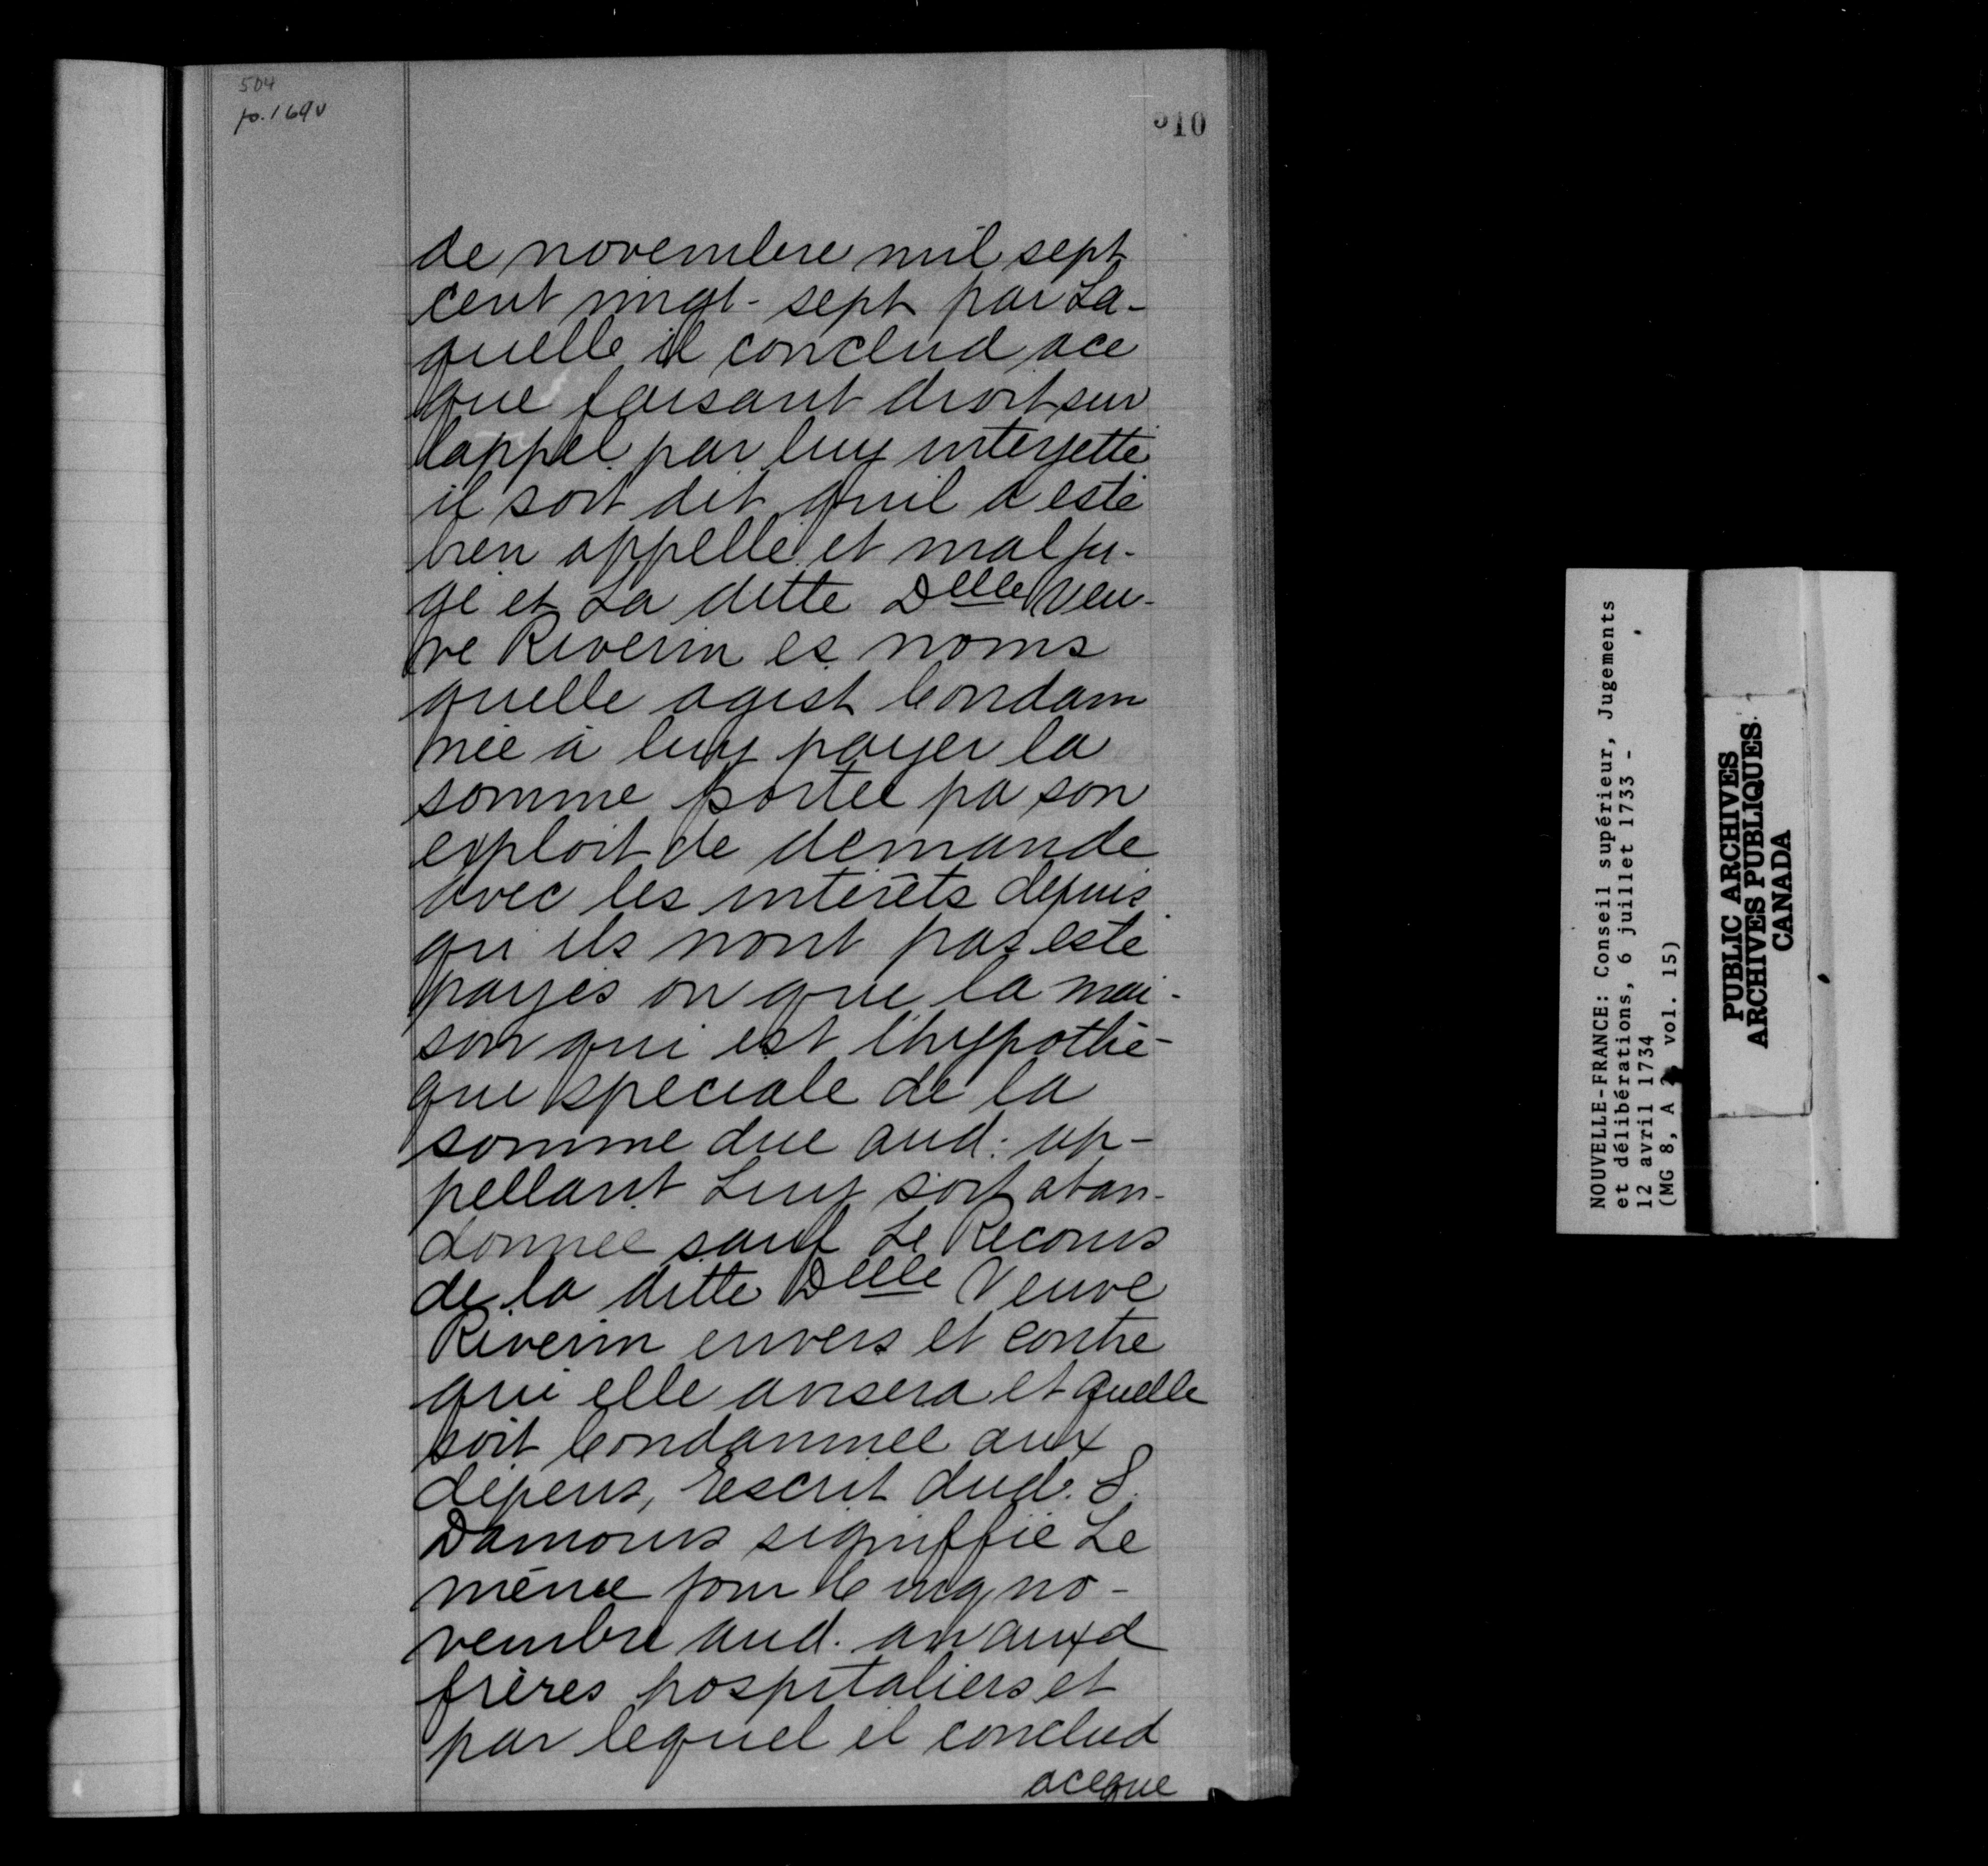 504
fo. 169v
310
de novembre mil sept
cent vingt-sept par La-
quelle il conclud ace
que faisant droit sur
lappel par luy interjetté
il soit dit quil a esté
bien appellé et mal ju-
gé et La ditte Delle Veu-
ve Riverin es noms
quelle agist Condam
née à luy payer la
somme portée pa son
exploit de demande
avec les intérêts depuis
qu ils nont pas esté
payés ou que la mai-
son qui est lhypothè-
que speciale de la
somme due aud. ap-
pellant Luy soit aban-
donnée sauf Le Recours
de la ditte Delle Veuve
Riverin envers et contre
qui elle avisera et quelle
soit Condamnée aux
dépens, Escrit dud. S.
Damours signiffié Le
même jour Cinq no-
vembre aud. an auxd
frères hospitaliers et
par lequel il conclud
aceque
NOUVELLE-FRANCE: Conseil supérieur, Jugements
et délibérations, 6 juillet 1733 -
12 avril 1734
(MG 8, A 2, vol. 15)
PUBLIC ARCHIVES
ARCHIVES PUBLIQUES
CANADA